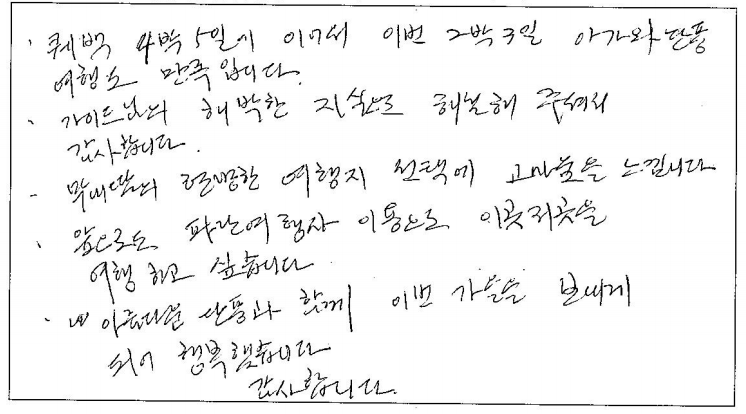 · 퀘백 4박 5일에 이어서 이번 2박 3일 아가와 단풍
여행도 만족입니다.
· 가이드님의 해박한 지식으로 해설해 주셔서
감사합니다.
· 막내딸의 현명한 여행지 선택에 고마움을 느낍니다
· 앞으로도 파란여행사 이용으로 이곳저곳을
여행 하고 싶습니다
· 아름다운 단풍과 함께 이번 가을을 보내게
되어 행복했습니다
감사합니다.